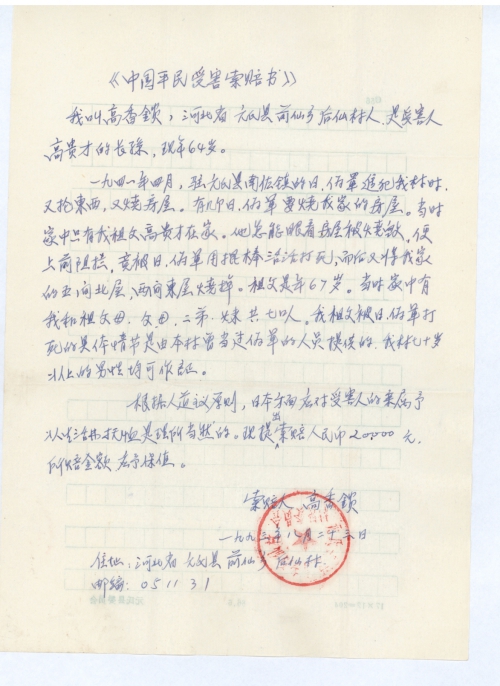 《中国平民受害索赔书》
我叫高香锁，河北省元氏县前仙乡后仙村人，是受害人
高贵才的长孫，现年64岁。
一九四一年四月，驻元氏县南佐镇的日、伪軍进犯我村时，
又抢東西，又烧房屋。有几个日、伪軍要烧我家的房屋。当时
家中只有我祖父高贵才在家。他怎能眼看房屋被烧毁，便
上前阻拦，竟被日、伪軍用棍棒活活打死，而后又将我家
的五间北屋、两间東屋烧掉。祖父是年67岁。当时家中有
我和祖父母、父母、二弟、妹共七口人。我祖父被日伪軍打
死的具体情节是由本村曾当过伪軍的人员提供的，我村七十岁
以上的男性均可作証。
根据人道议原则，日本方面应对受害人的亲属予
以经济抚恤是理所当然的。现提出索赔人民币20000元，
所赔金额应予保值。
索赔人 高香鎖
一九九三年八月二十三日
住址：河北省元氏县前仙乡后仙村
邮编：051131